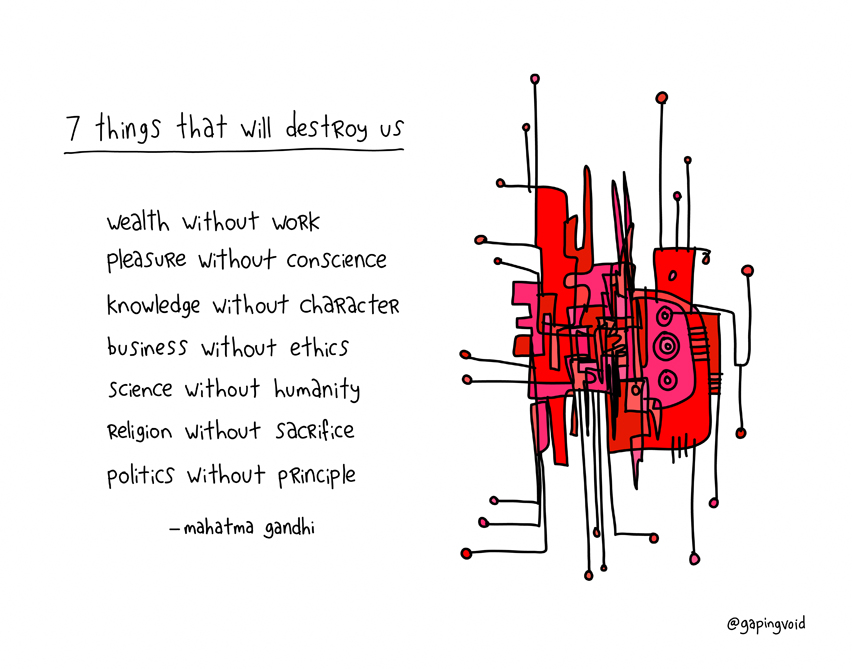 7 things that will destroy us
wealth without work
pleasure without conscience
knowledge without character
business without ethics
science without humanity
religion without sacrifice
politics without principle
– mahatma gandhi
@gapingvoid